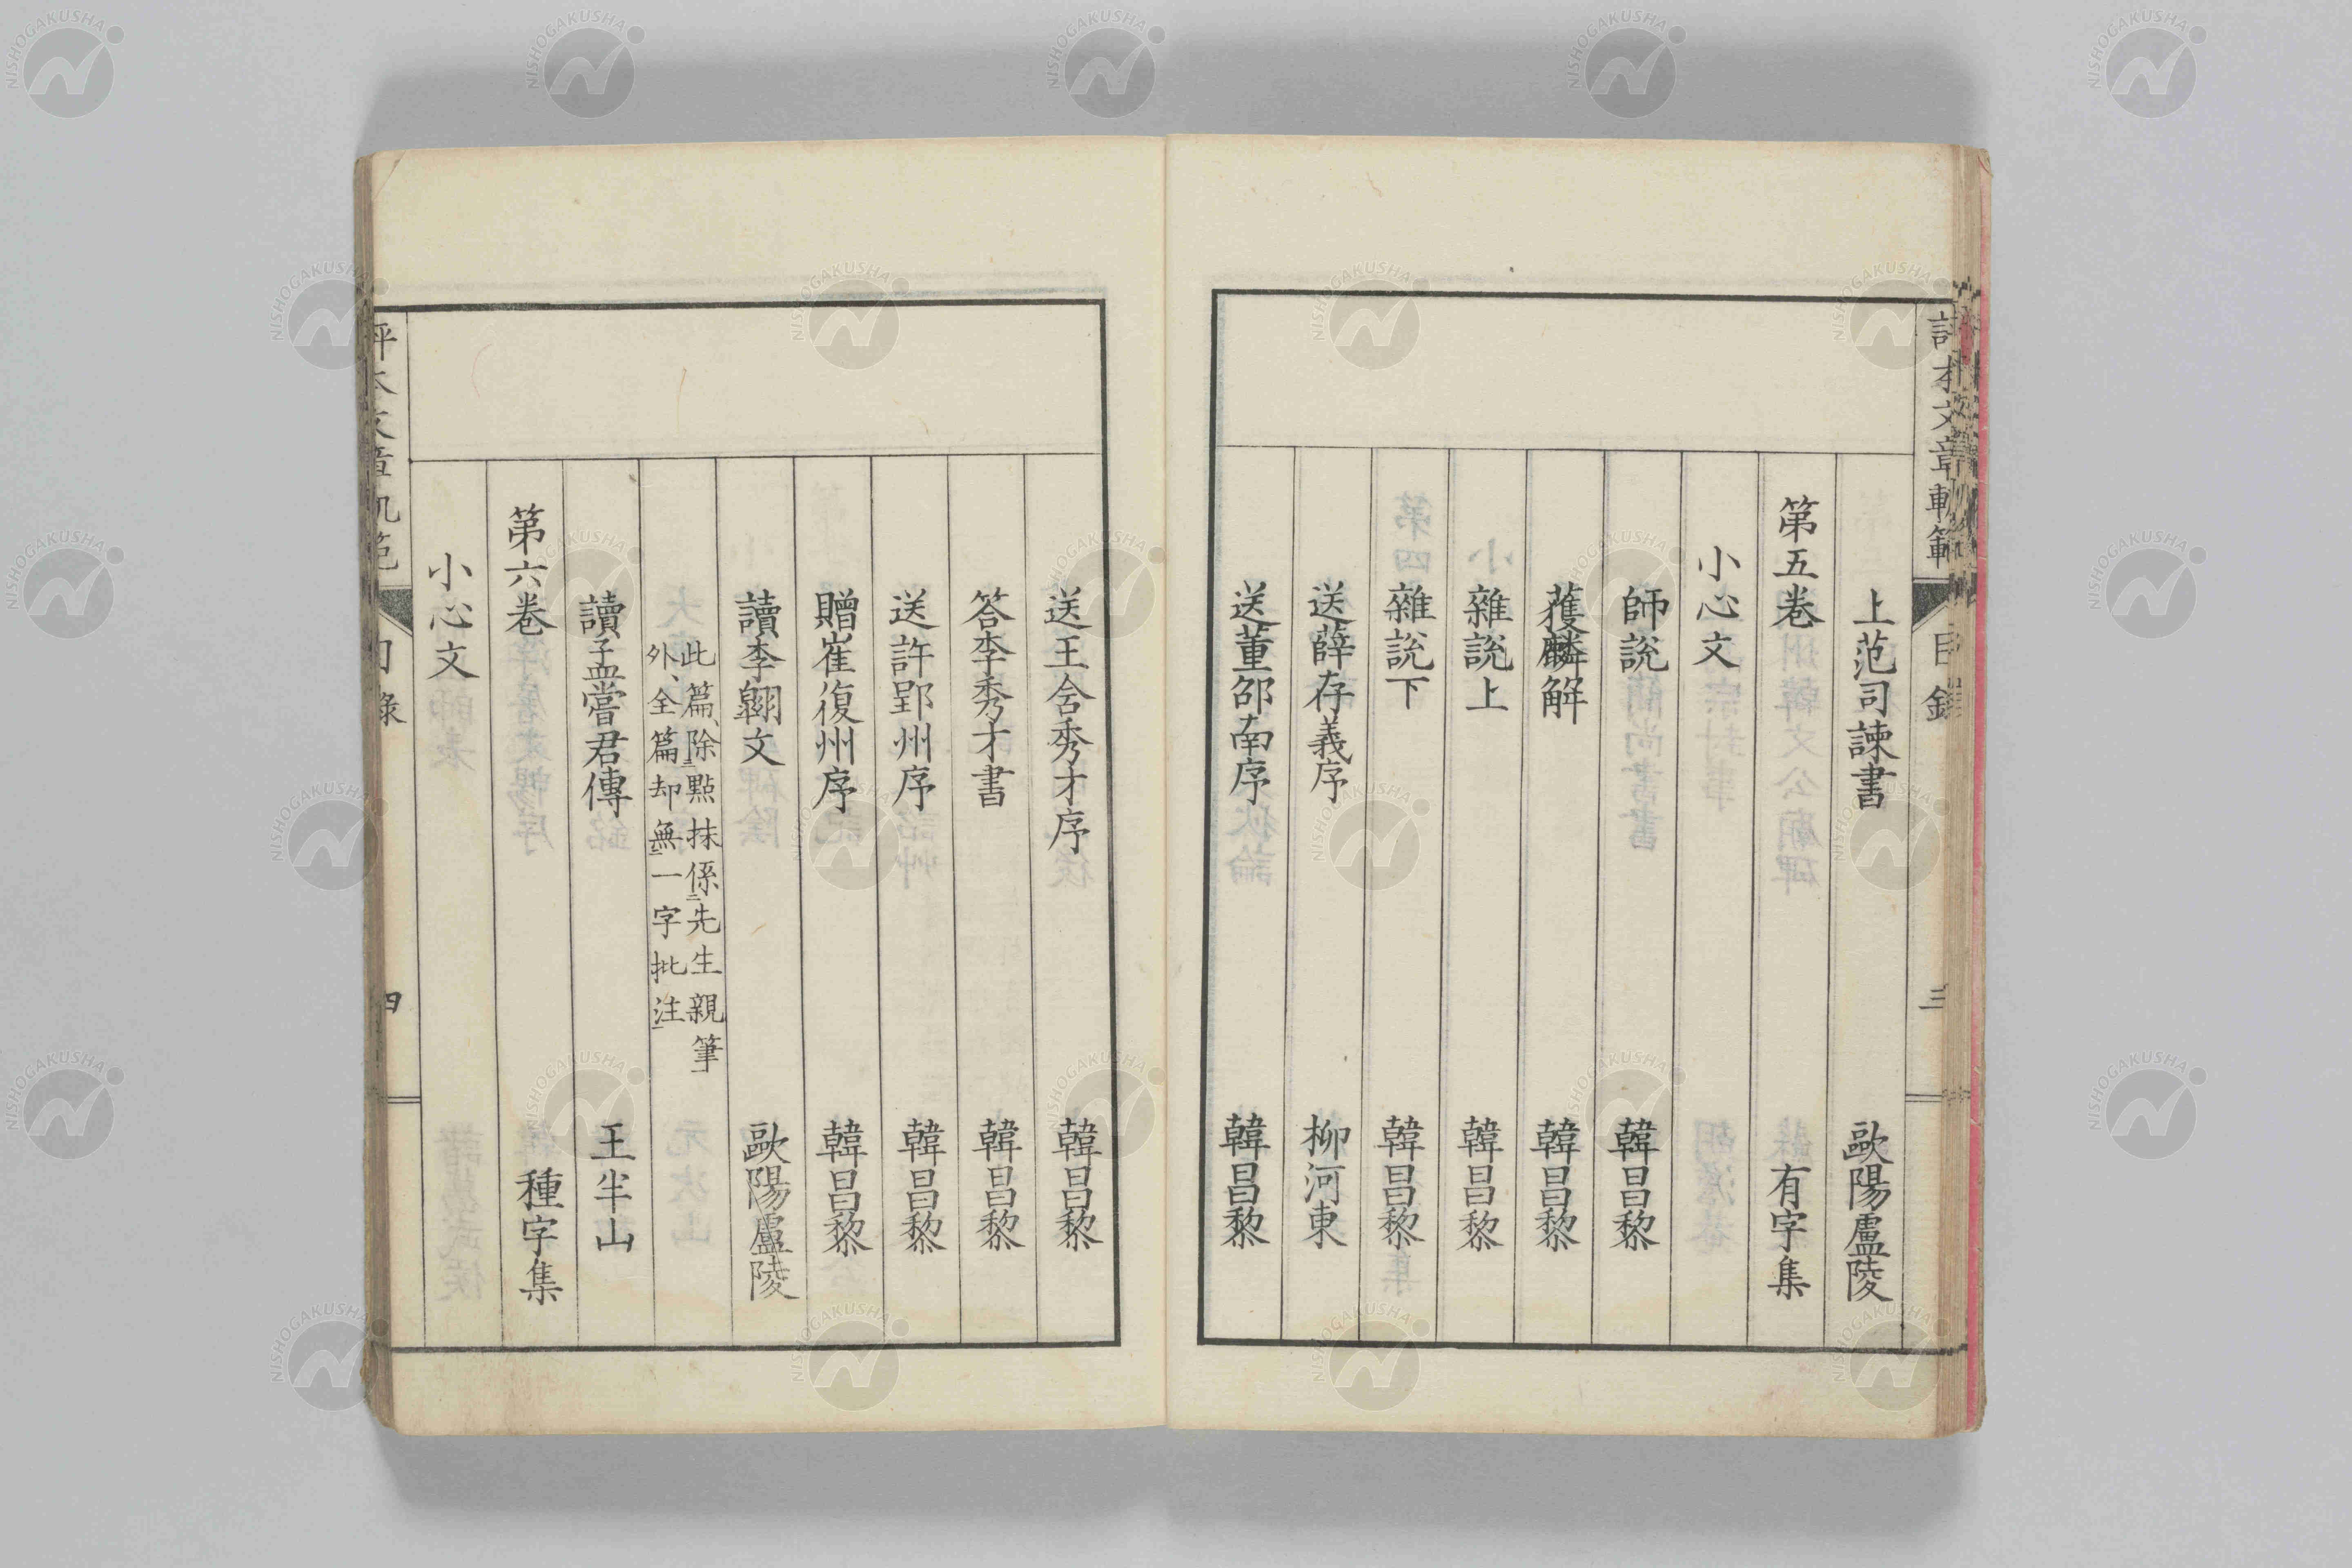 上范司諫書 歐陽盧陵
第五卷 有字集
小心文
師說 韓昌黎
獲麟解 韓昌黎
雜說上 韓昌黎
雜說下 韓昌黎
送薛存義序 柳河東
送董邵南序 韓昌黎
送王含秀才序 韓昌黎
答李秀才書 韓昌黎
送許郢州序 韓昌黎
贈崔復州序 韓昌黎
讀李翶文 歐陽盧陵
此篇、除點抹係先生親筆
外、全篇却無一字批注
讀孟嘗君傳 王半山
第六卷 種字集
小心文
目錄
四
NISHOGAKUSHA